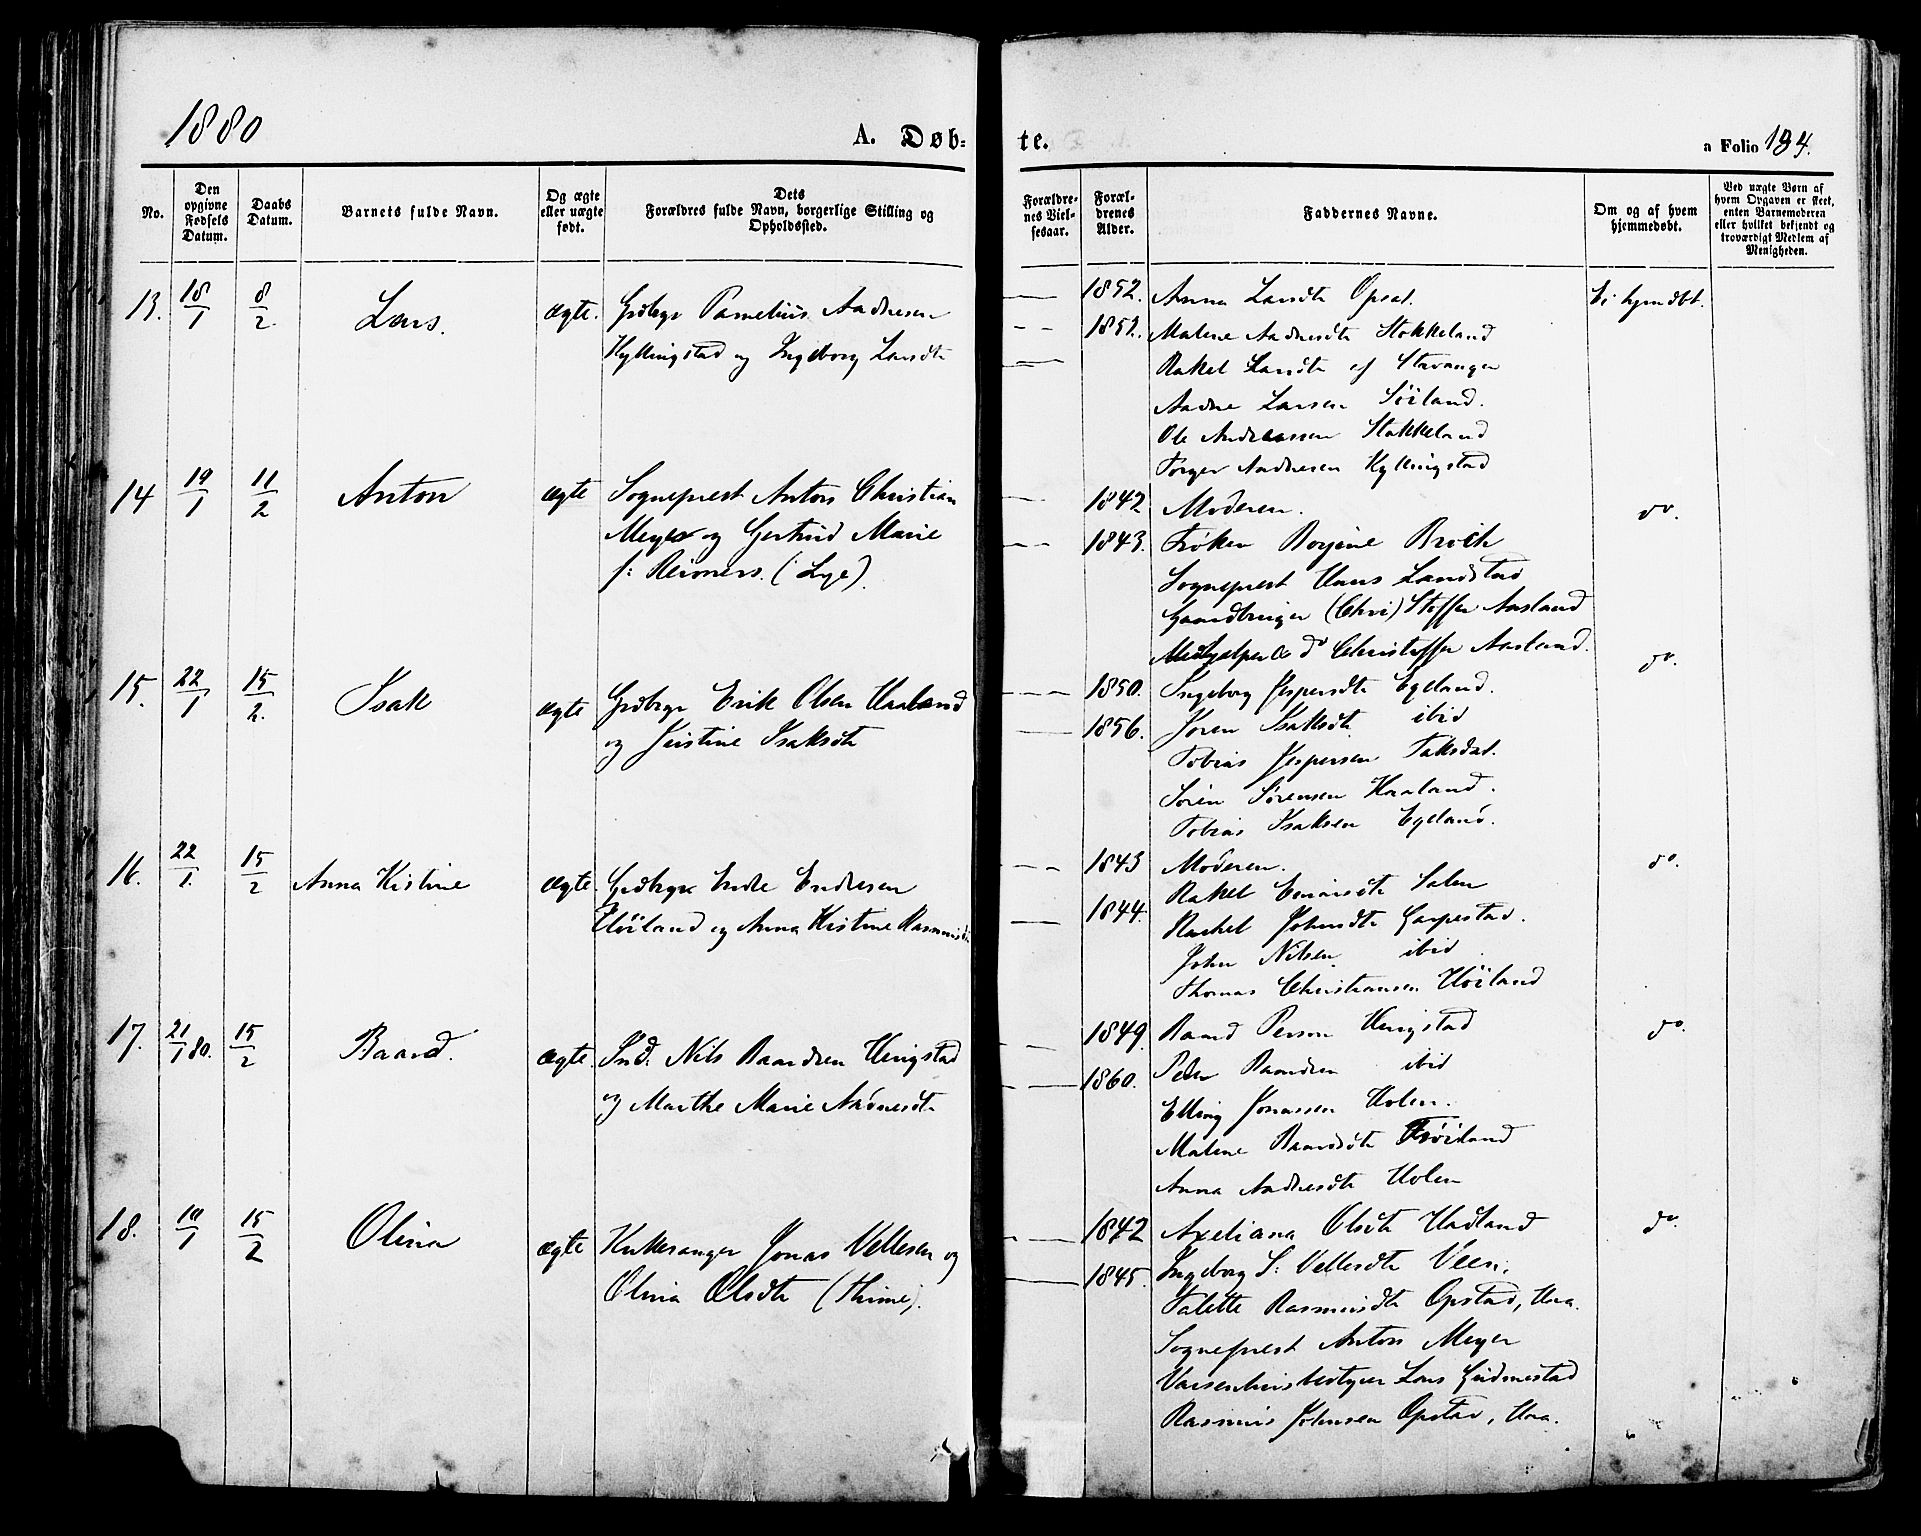 1880
A. Døb-
te.
a Folio 194.
No.
Den opgivne Fødsels Datum.
Daabs Datum.
Barnets fulde Navn.
Og ægte eller uægte født.
Dets Forældres fulde Navn, borgerlige Stilling og Opholdssted.
Forældrenes Vielsesaar.
Forældrenes Alder.
Faddernes Navne.
Om og af hvem hjemmedøbt.
Ved uægte Børn af hvem Opgaven er skeet, enten Barnemoderen eller hvilket bekjendt og troværdigt Medlem af Menigheden.
13. 18/1 8/2 Lars. ægte. Grdbrgr Pamelius Aadnesen
Kyllingstad og Ingeborg Larsdtr
1852. Anna Larsdtr Opsal. Ei hjemdbt.
1852. Malene Aadnesdtr Stokkeland
Rakel Larsdtr af Stavanger
Aadne Larsen Söiland.
Ole Andreassen Stokkeland
Torger Aadnesen Kyllingstad
14 19/1 11/2 Anton ægte Sogneprest Anton Christian
Meyer og Gertrud Marie
f: Reimers. (Lye).
1842 Moderen. do.
1843. Frøken Borgine Broch
Sogneprest Hans Landstad
Gaardbruger (Chri) Stoffer Aasland
Medhjelper & do Christoffer Aasland.
15. 22/1 15/2. Isak ægte Grdbrgr Erik Olsen Haaland
og Kristine Isaksdtr
1850. Ingeborg Jespersdtr Egeland. do.
1856. Joren Isaksdtr ibid
Tobias Jespersen Taksdal.
Sören Sörensen Haaland.
Tobias Isaksen Egeland.
16. 22/1. 15/2 Anna Kistine ægte. Grdbrgr Endre Endresen
Höiland og Anna Kistine Rasmusdtr
1843 Moderen. do.
1844. Rakel Einarsdtr Salen
Rachel Johnsdtr Garpestad.
John Nilsen ibid
Thomas Christiansen Höiland
17. 21/1 80. 15/2 Baard. ægte. Ind: Nils Baardsen Herigstad
og Marthe Marie Aadnesdtr
1849. Baard Person Herigstad do.
1860. Peder Baardsen ibid
Elling Jonassen Holen.
Malene Baardsdtr Fröiland
Anna Aadnesdtr Holen
18. 19/1 15/2 Olina ægte Kirkesanger Jonas Vellesen og
Olina Olsdtr (Thime).
1842 Axeliana Olsdtr Hadland do.
1845. Ingeborg S: Vellesdtr Veen.
Talette Rasmusdtr Opstad, Haa.
Sogneprest Anton Meyer
Vaisenhusbestyrer Lars Gudmestad
Rasmus Johnsen Opstad, Haa.